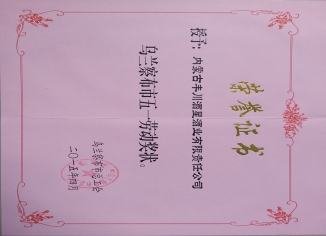 荣誉证书
授予：内蒙古丰川酒星酒业有限责任公司
乌兰察布市五一劳动奖状。
乌兰察布市总工会
二〇一五年四月